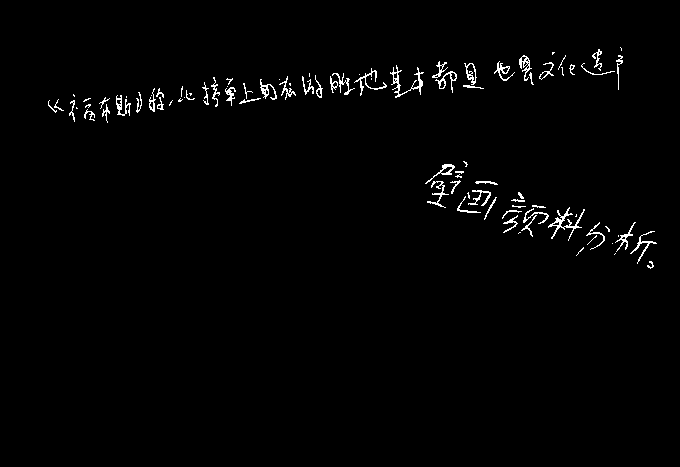 《福布斯》称,此榜单上的旅游胜地基本都是世界文化遗产
壁画颜料分析。